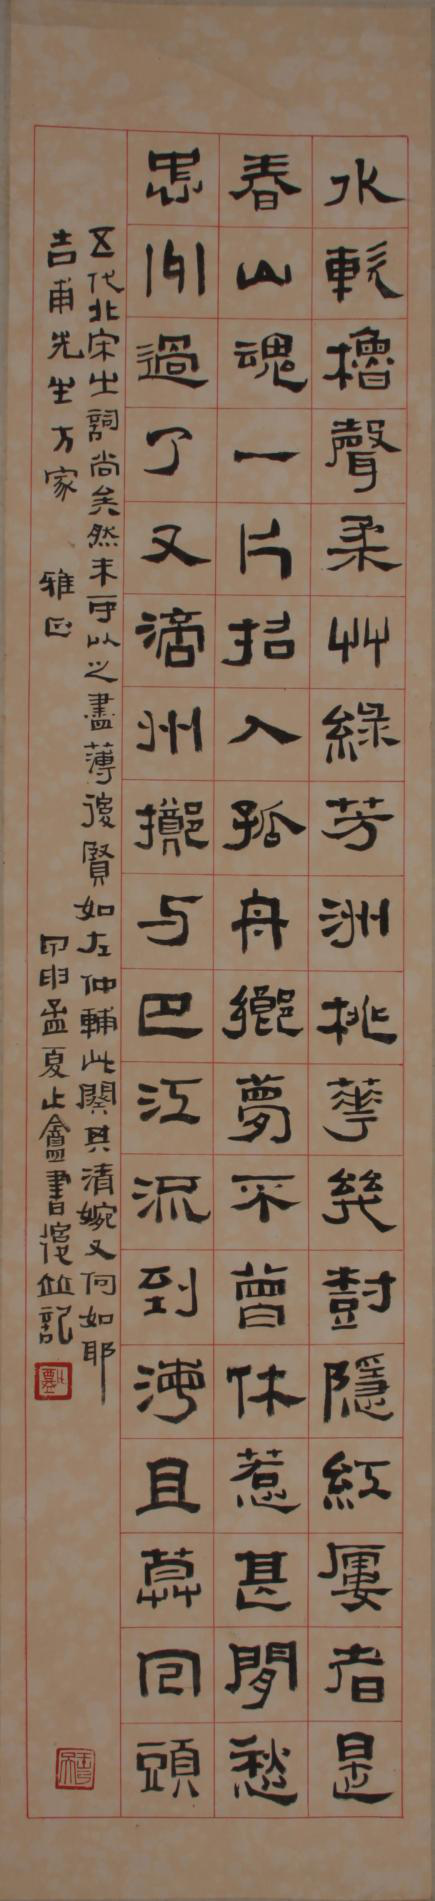 水軟櫓聲柔艸綠芳洲桃華幾樹隱紅廔者是
春山魂一片招入孤舟鄉夢不曾休惹甚閒愁
忠州過了又涪州擲与巴江流到海且莫回頭
五代北宋之詞尚矣然未可以之盡薄後賢如左仲輔此闋其清婉又何如耶
吉甫先生方家 雅正 甲申孟夏止盦書後並記